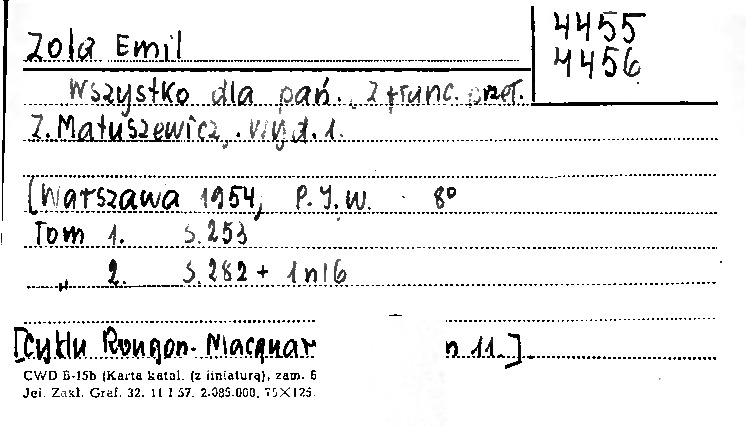 Zola Emil
4455
4456
Wszystko dla pań., Z franc. przeł.
Z. Matuszewicz,. Wyd. 1.
[Warszawa 1954, P.I.W. 8°
Tom 1. S. 253
„ 2. S. 282 + 1 nlb
[Cyklu Rougon-Macquar n 11.]
CWD B-15b (Karta katal. (z liniaturą), zam. 6
Jel. Zakł. Graf. 32. 11 I 57. 2.085.000. 75×125.